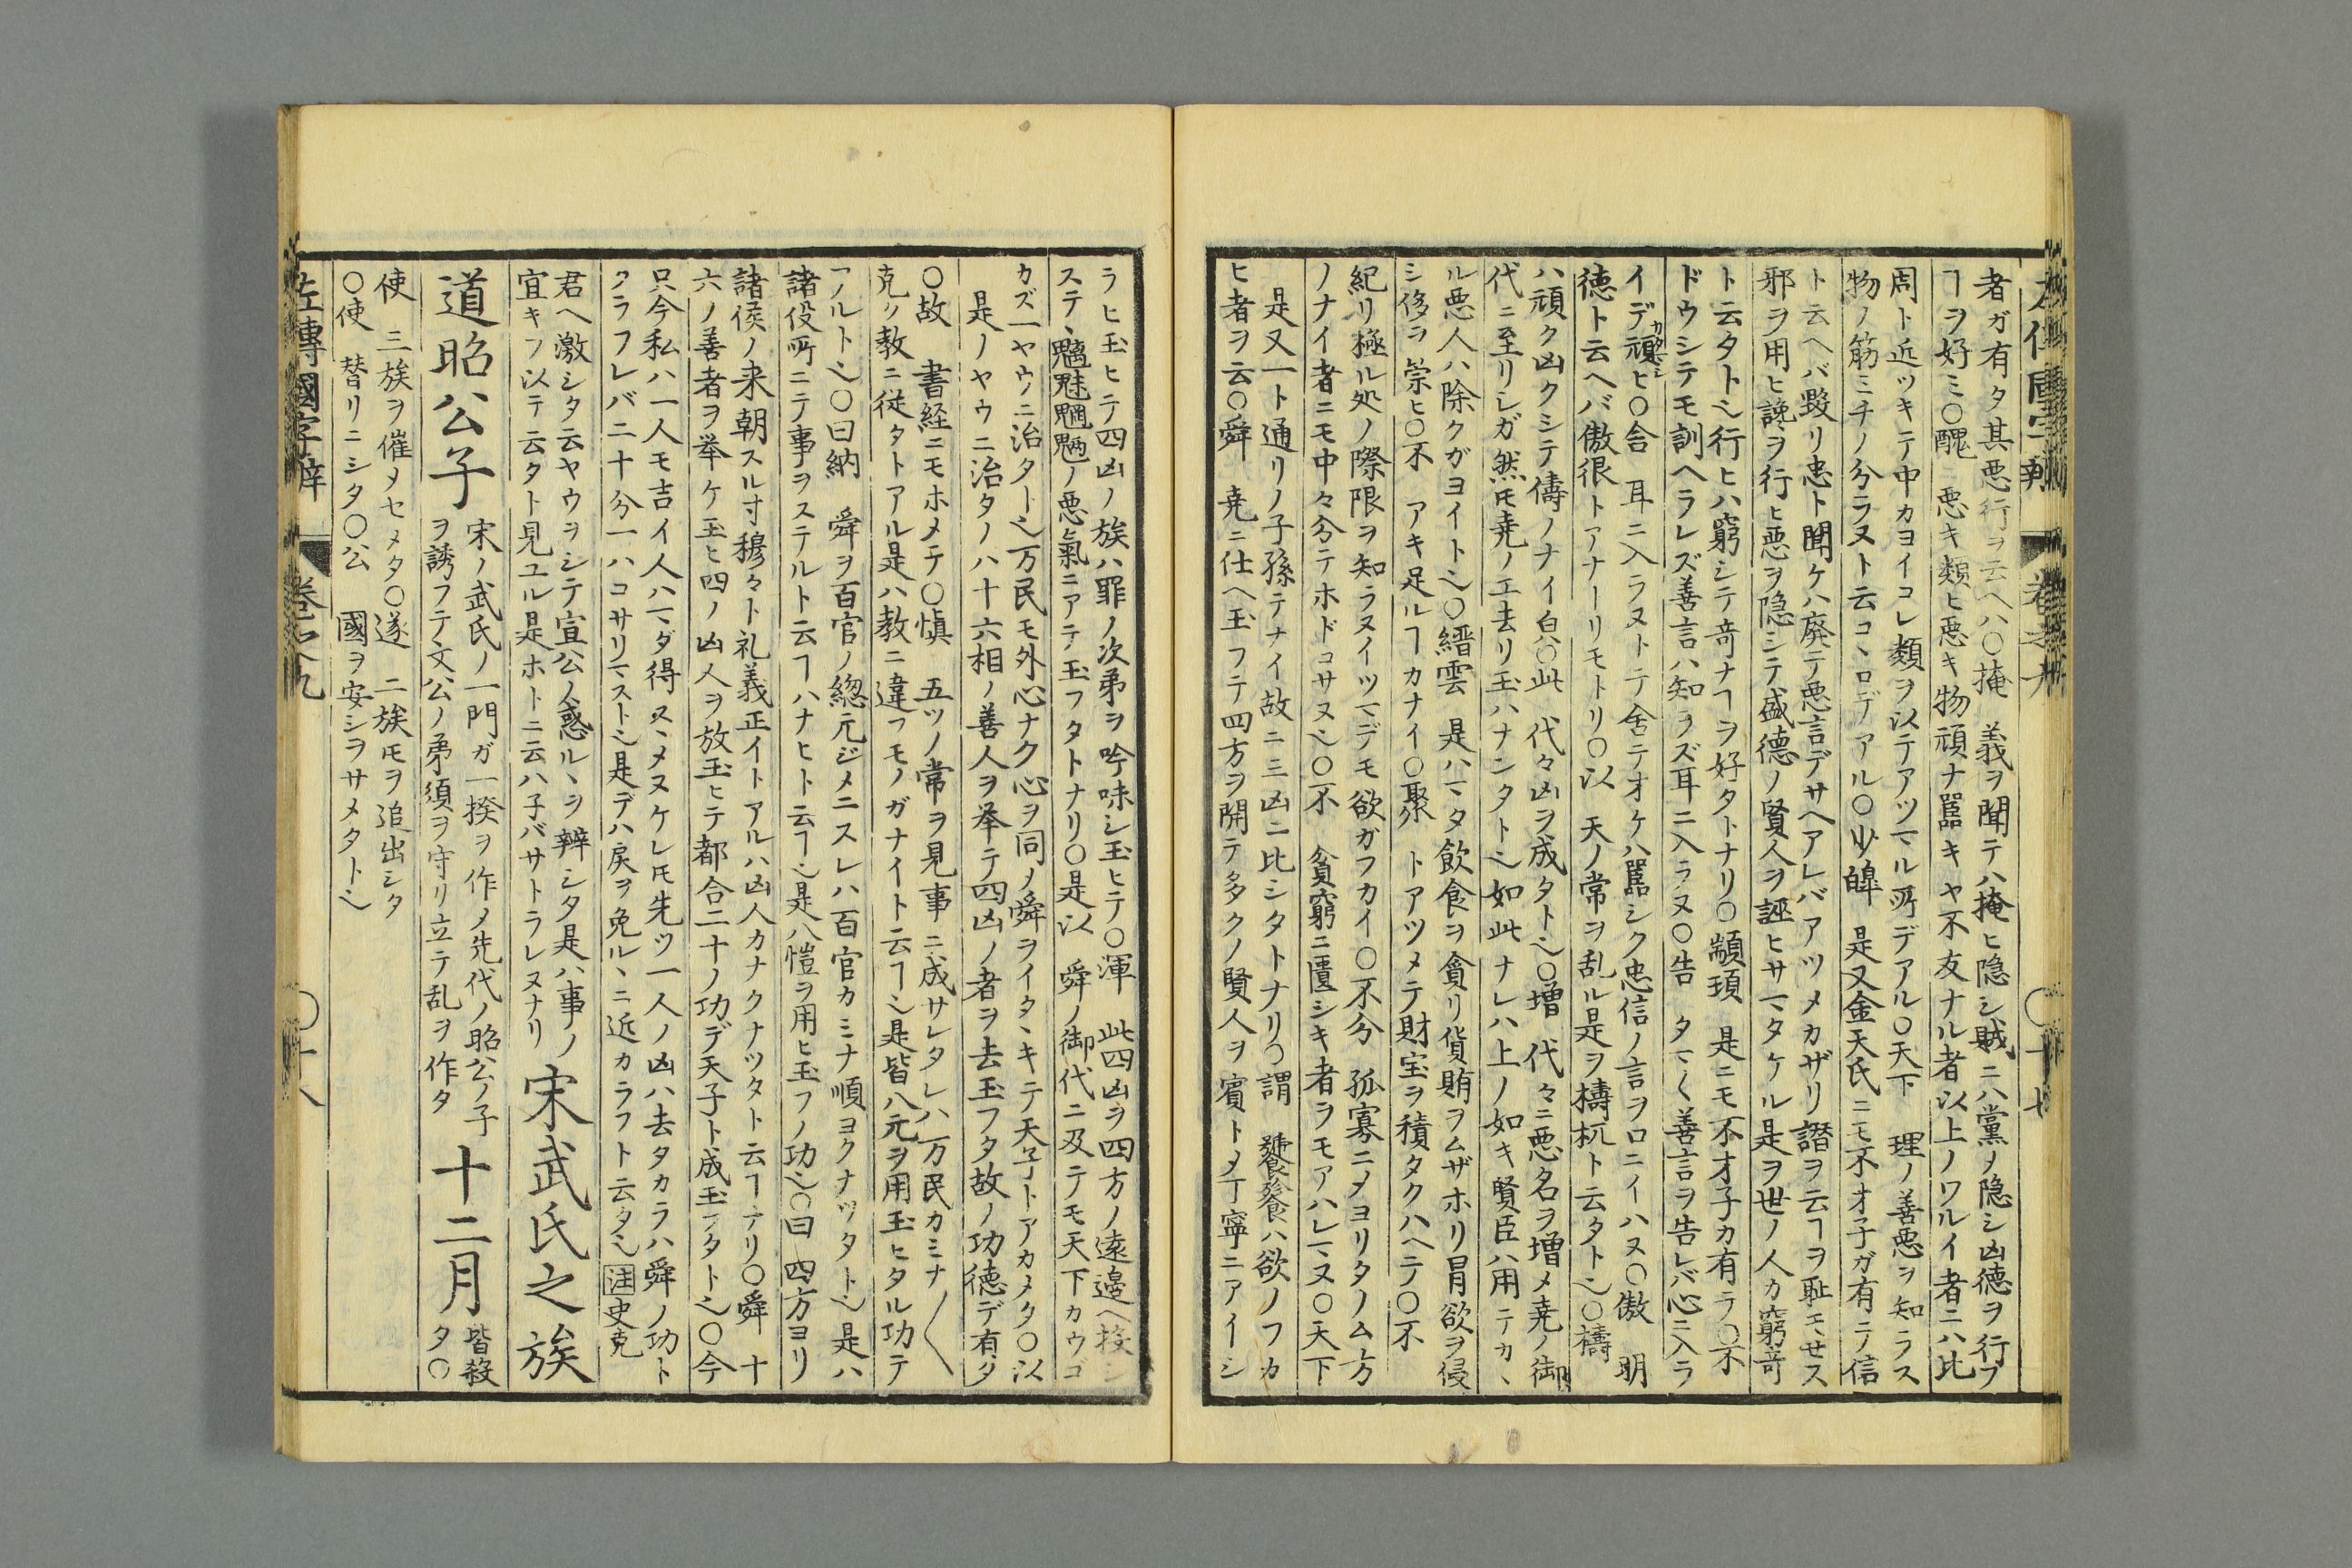 者ガ有タ其悪行ヲ云ヘハ〇掩 義ヲ聞テハ掩ヒ隐シ賊ニハ黨メ隐シ凶徳ヲ行フ
ヿヲ好ミ〇醜 悪キ類ヒ悪キ物頑ナ嚚キヤ不友ナル者以上ノワルイ者ニハ比
周ト近ツキテ中カヨイコレ類ヲ以テアツマル所デアル〇天下 理ノ善悪ヲ知ラス
物ノ筋ミチノ分ラヌト云コヽロデアル〇少皥 是又金天氏ニモ不才子ガ有テノ信
ト云ヘバ毀リ忠ト聞ケハ廃テ悪言デサヘアレバアツメカザリ譖ヲ云ヿヲ耻モせス
邪ヲ用ヒ讒ヲ行ヒ悪ヲ隐シテ盛徳ノ賢人ヲ誣ヒサマタケル是ヲ世ノ人カ窮竒
ト云タト乄行ヒハ窮シテ竒ナヿヲ好タトナリ〇顓頊 是ニモ不才子カ有テ〇不
ドウシテモ訓ヘラレズ善言ハ知ラズ耳ニ入ラヌ〇告 タマ〱善言ヲ告レバ心ニ入ラ
イデ頑ヒ〇舎 耳ニ入ラヌトテ舎テオケハ嚚シク忠信ノ言ヲロニイハヌ〇傲 明
徳ト云ヘバ傲很トアナーリモトリ〇以 天ノ常ヲ乱ル是ヲ檮杌ト云タト乄〇檮
ハ頑ク凶クシテ儔ノナイ㒵〇此 代々凶ヲ成タト乄〇増 代々ニ悪名ヲ増メ尭ノ御
代ニ至リシガ然モ尭ノエ去リ玉ハナンタト乄如此ナレハ上ノ如キ賢臣ハ用テカヽ
ル悪人ハ除クガヨイト乄〇縉雲 是ハマタ飲食ヲ貪リ貨賄ヲムザホリ冐欲ヲ侵
シ侈ヲ崇ヒ〇不 アキ足ルヿカナイ〇聚 トアツメテ財宝ヲ積タクハヘテ〇不
紀リ極ル処ノ際限ヲ知ラヌイツマデモ欲ガフカイ〇不分 孤寡ニメヨリタノム方
ノナイ者ニモ中々分テホドコサヌ乄〇不 貧窮ニ匱シキ者ヲモアハレマヌ〇天下
是又一ト通リノ子孫テナイ故ニ三凶ニ比シタトナリ〇謂 饕餮ハ欲ノフカ
ヒ者ヲ云〇舜 尭ニ仕ヘ玉フテ四方ヲ開テ多クノ賢人ヲ賓トメ丁寧ニアイシ
ラヒ玉ヒテ四凶ノ族ハ罪ノ次第ヲ吟味シ玉ヒテ〇渾 此四凶ヲ四方ノ遠邉ヘ投シ
ステヽ魑魅魍魎ノ悪氣ニアテ玉フタトナリ〇是以 舜ノ御代ニ及テモ天下カウゴ
カズ一ヤウニ治タト乄万民モ外心ナク心ヲ同ノ舜ヲイタヽキテ天子トアカメタ〇以
是ノヤウニ治タノハ十六相ノ善人ヲ举テ四凶ノ者ヲ去玉フタ故ノ功徳デ有タ
〇故 書経ニモホメテ〇愼 五ツノ常ヲ見事ニ成サレタレハ万民カミナ〱
克ク教ニ従タトアル是ハ教ニ違フモノガナイト云ヿ乄是皆八元ヲ用玉ヒタル功テ
アルト乄〇曰納 舜ヲ百官ノ緫元ジメニスレハ百官カミナ順ヨクナツタト乄是ハ
諸役所ニテ事ヲステルト云ヿハナヒト云ヿ乄是八愷ヲ用ヒ玉フノ功乄〇曰 四方ヨリ
諸侯ノ来朝スル寸穆々ト礼義正イトアルハ凶人カナクナツタト云ヿナリ〇舜 十
六ノ善者ヲ举ケ玉ヒ四ノ凶人ヲ放玉ヒテ都合二十ノ功デ天子ト成玉フタト乄〇今
只今私ハ一人モ吉イ人ハマダ得ヌヽメヌケレモ先ツ一人ノ凶ハ去タカラハ舜ノ功ト
クラフレバ二十分一ハコサリマスト乄是デハ戻ヲ免ルヽニ近カラフト云タ乄注史克
君ヘ激シタ云ヤウヲシテ宣公ノ惑ルヽヲ辨シタ是ハ事ノ
宜キフ以テ云タト見ユル是ホトニ云ハ子バサトラレヌナリ 宋武氏之族
道昭公子 宋ノ武氏ノ一門ガ一揆ヲ作メ先代ノ昭公ノ子
ヲ誘フテ文公ノ弟須ヲ守リ立テ乱ヲ作タ 十二月 皆殺
タ〇
使 三族ヲ催メセメタ〇遂 二族モヲ追出シタ
〇使 替リニシタ〇公 國ヲ安シヲサメタト乄
左傳國字辯 巻之九 〇十八